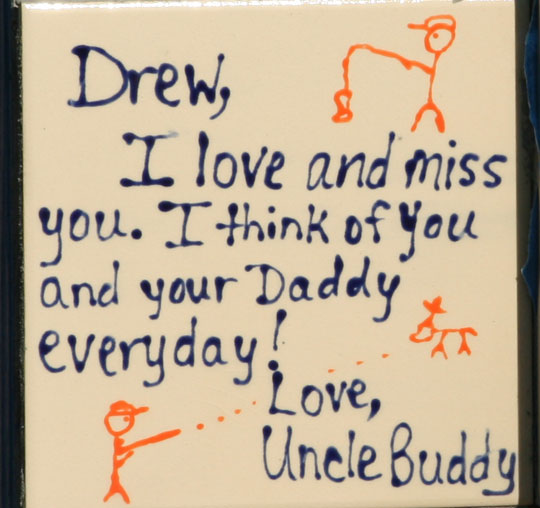 Drew,
I love and miss
you. I think of you
and your Daddy
everyday!
Love,
Uncle Buddy